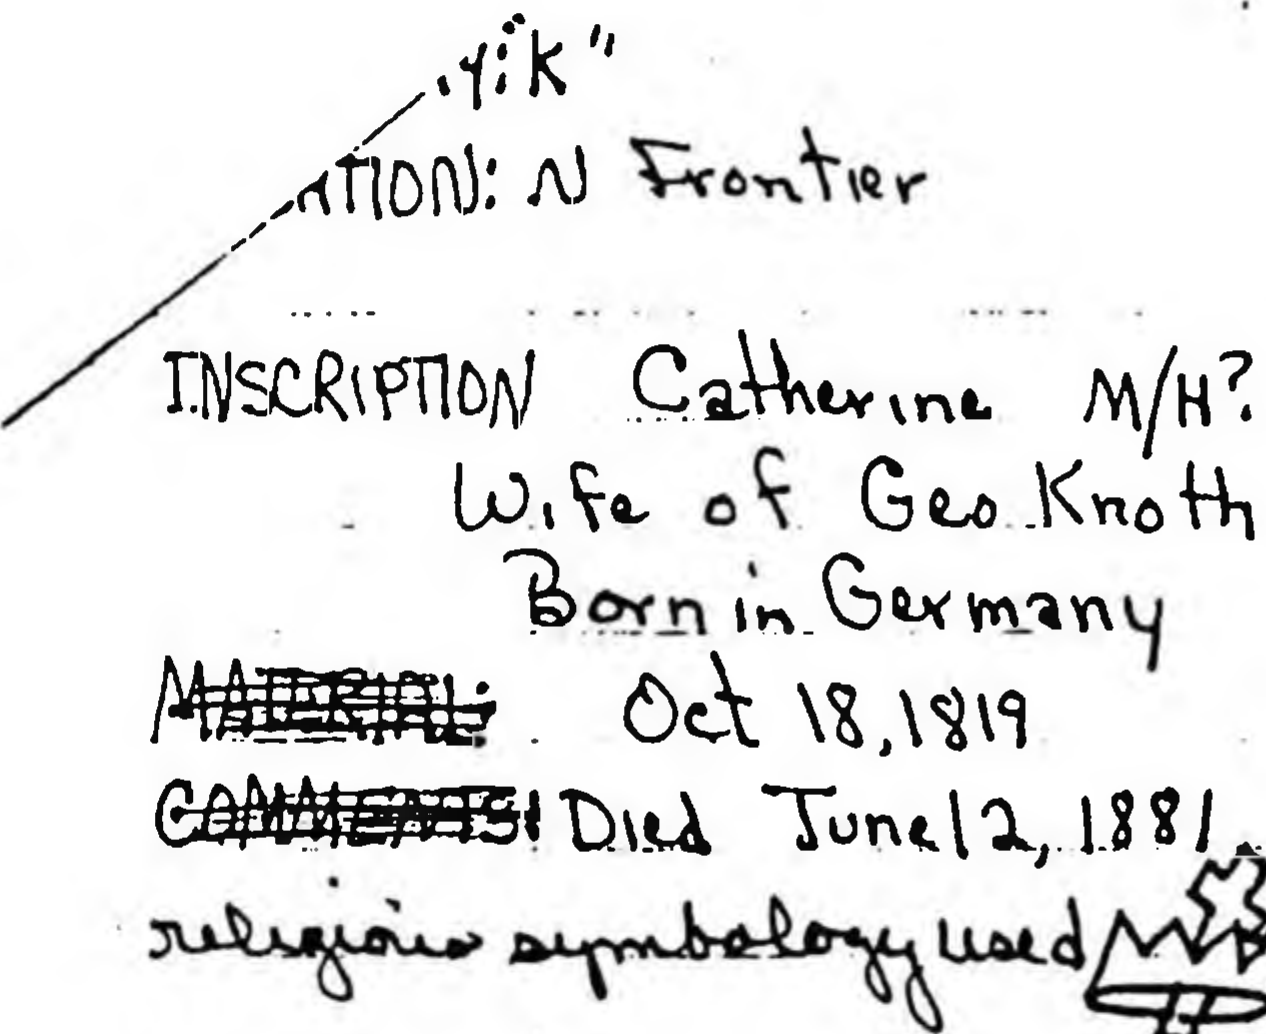 N Frontier
INSCRIPTION Catherine M/H?
Wife of Geo Knoth
Born in Germany
MATERIAL: Oct 18, 1819
COMMENTS: Died June 12, 1881
religious symbology used